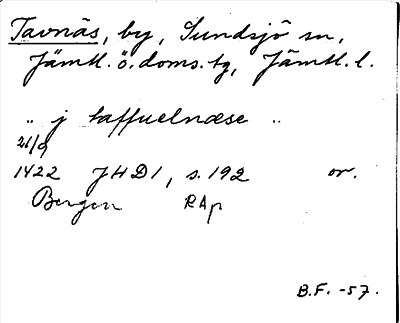 Tavnäs, by, Sundsjö sn,
Jämtl. ö. doms. tg, Jämtl. l.
" j taffuelnæse "
21/9
1422 JHD1, s. 192 or.
Bergen RAp
B.F. -57.